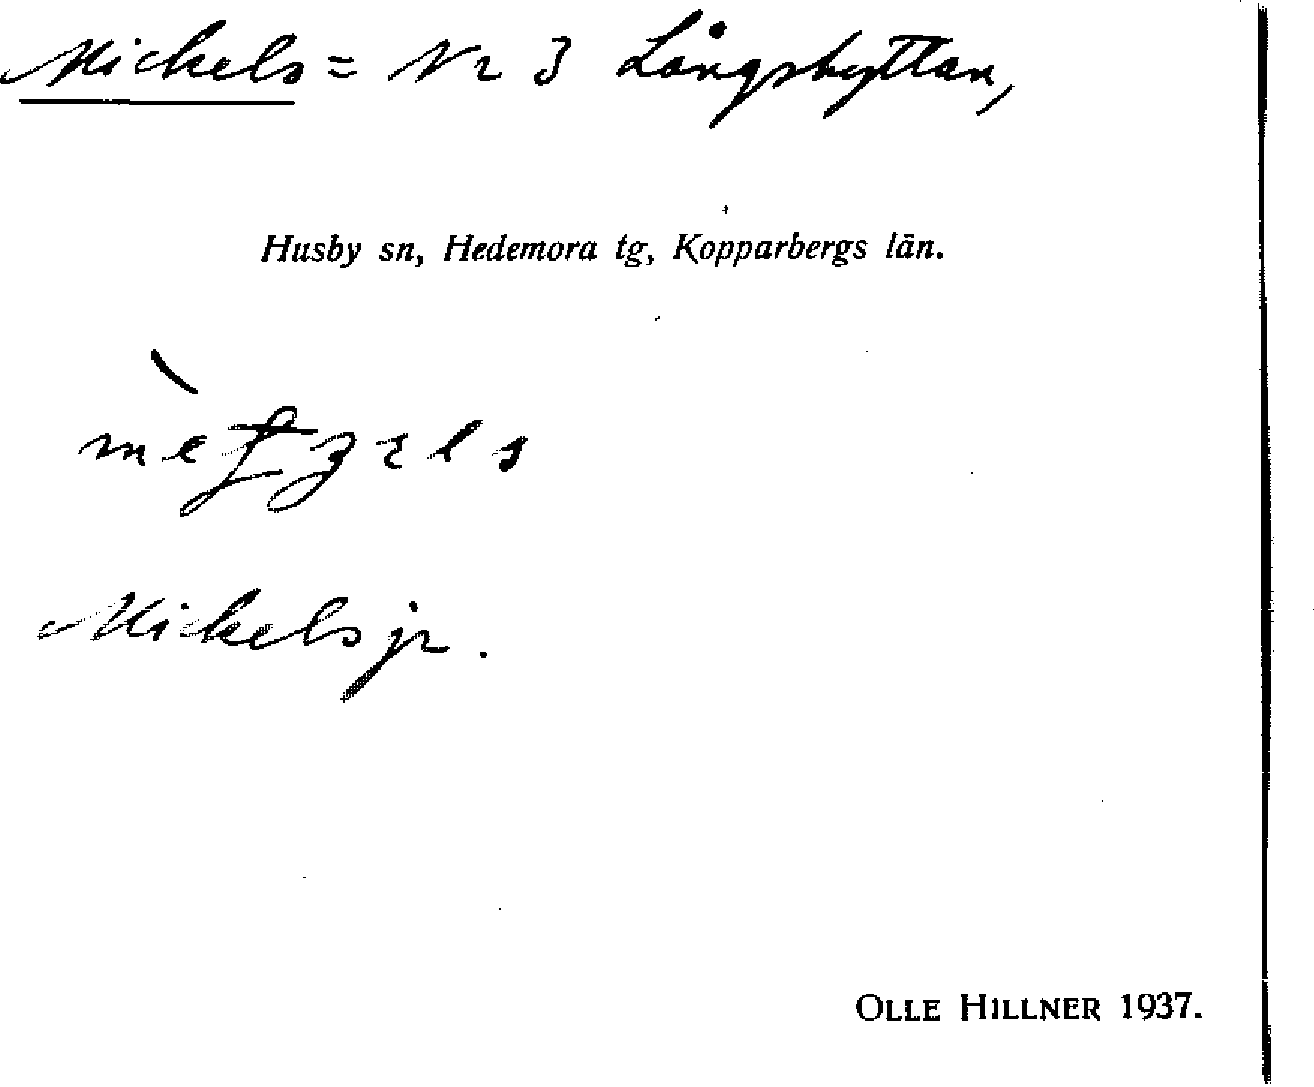 Mickels = Nr 3 Långshyttan,
Husby sn, Hedemora tg, Kopparbergs län.
Mickels jr.
OLLE HILLNER 1937.